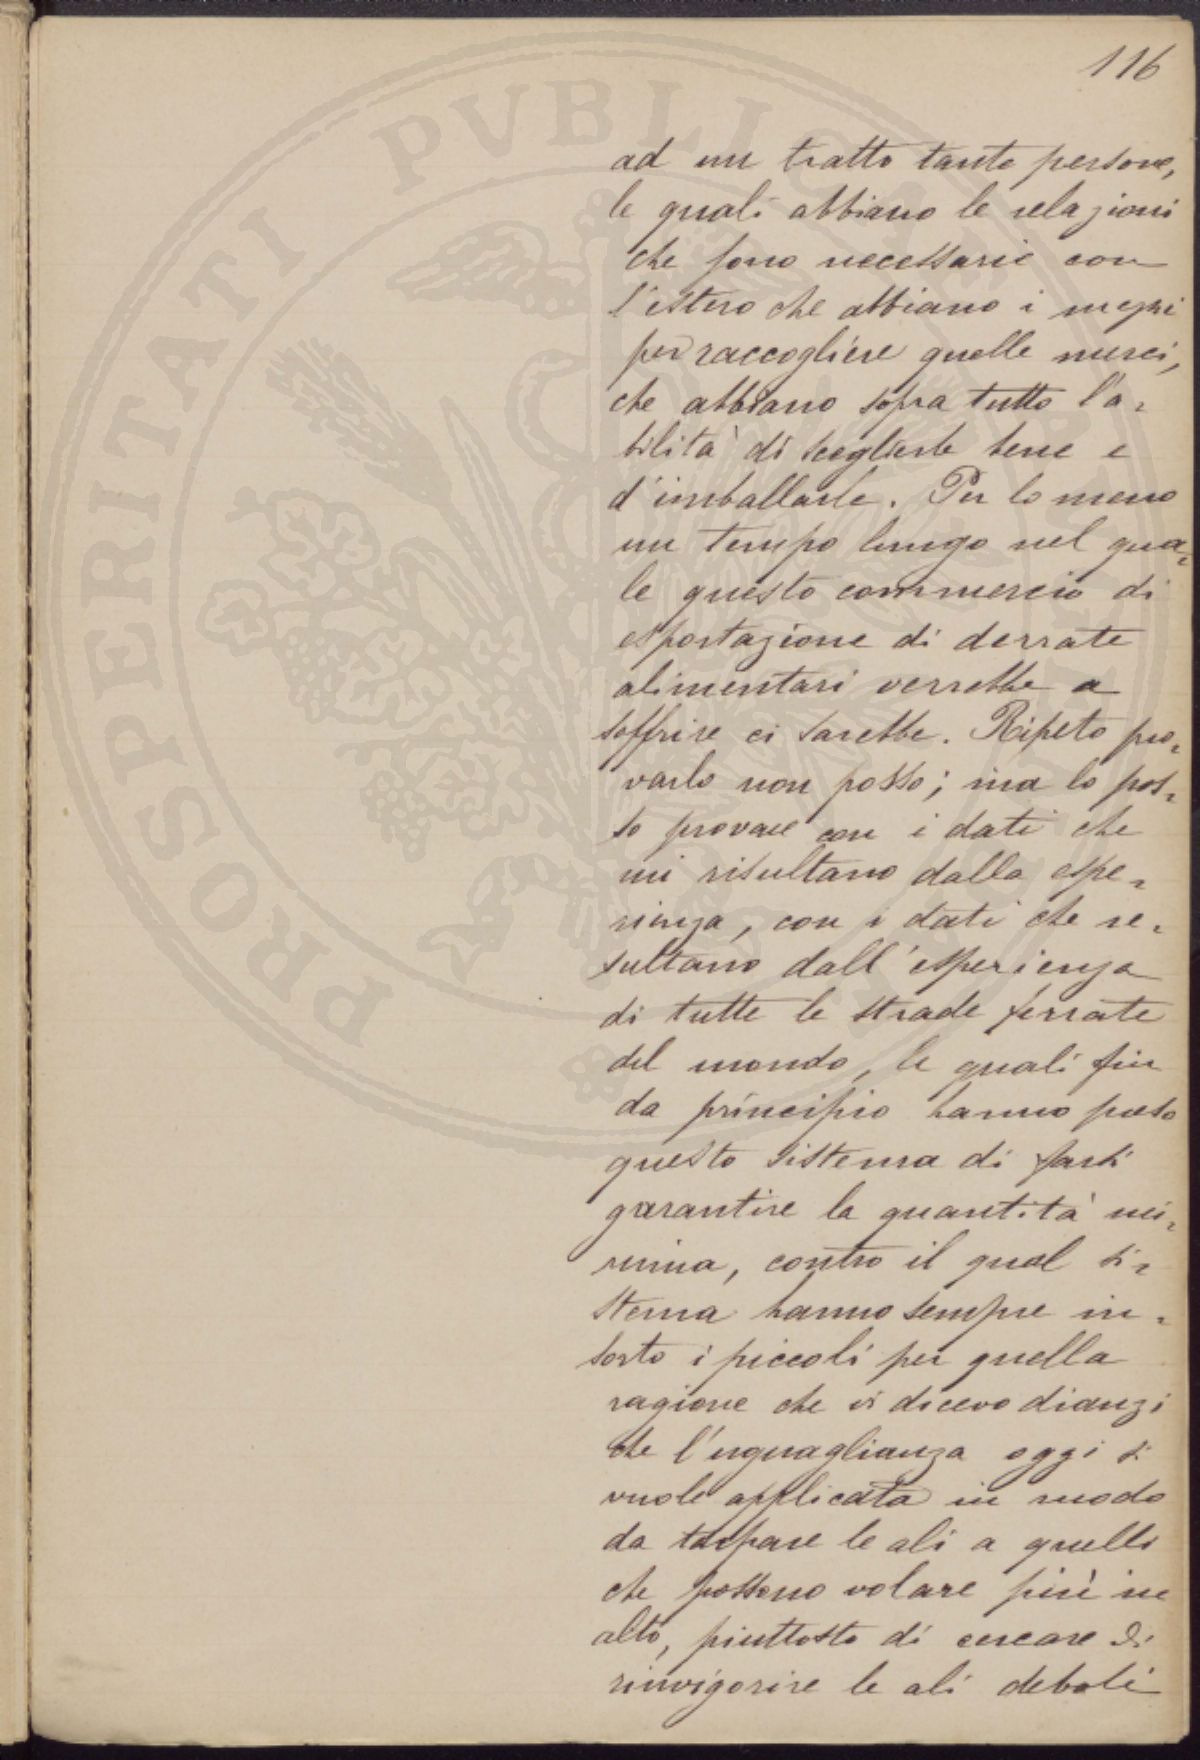 116
ad un tratto tante persone,
le quali abbiano le relazioni
che sono necessarie con
l'estero che abbiano i mezzi
per raccogliere quelle merci,
che abbiano sopra tutto l'a=
bilità di sceglierle bene e
d'imballarle. Per lo meno
un tempo lungo nel qua=
le questo commercio di
esportazione di derrate
alimentari verrebbe a
soffrire ci sarebbe. Ripeto pro=
varlo non posso; ma lo pos=
so provare con i dati che
mi risultano dalla espe=
rienza, con i dati che re=
sultano dall'esperienza
di tutte le strade ferrate
del mondo, le quali fin
da principio hanno preso
questo sistema di farsi
garantire la quantità mi=
nima, contro il qual si=
stema hanno sempre in=
sorto i piccoli per quella
ragione che vi dicevo dianzi
che l'uguaglianza oggi si
vuole applicata in modo
da tarpare le ali a quelli
che possono volare più in
alto, piuttosto di cercare di
rinvigorire le ali deboli
PROSPERITATI PVBLICAE